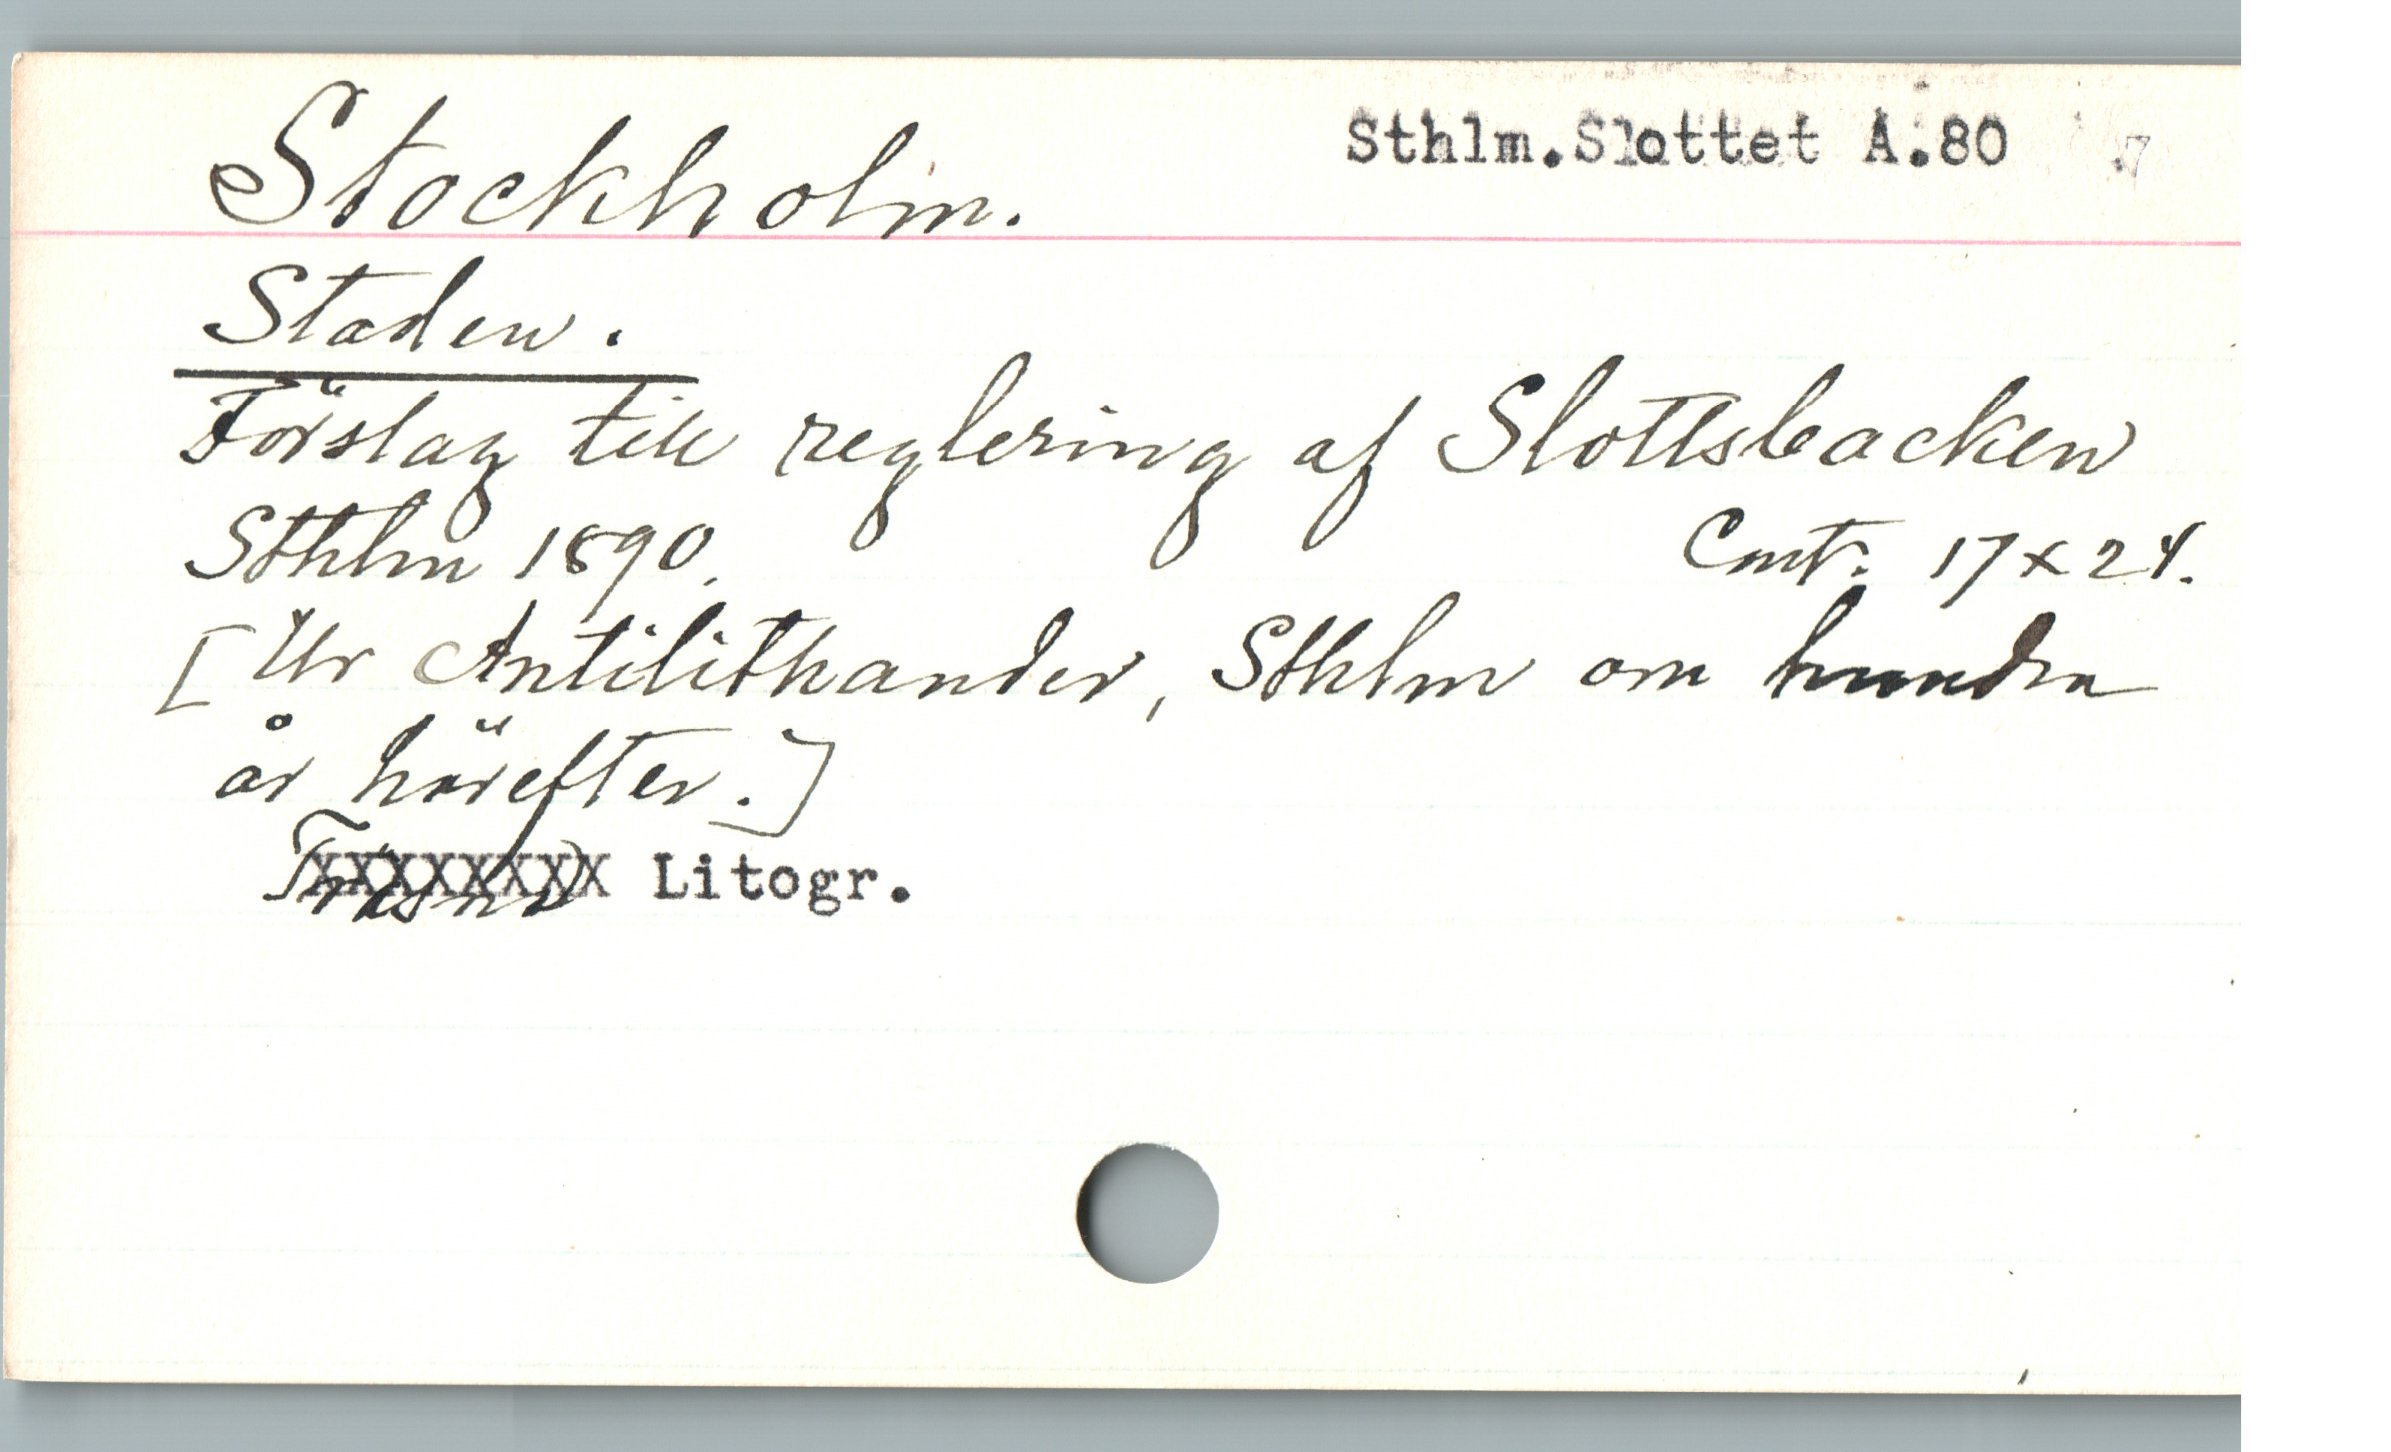 Stockholm.
Sthlm.Slottet A.80
Staden.
Förslag till reglering af Slottsbacken
Sthlm 1890.
Cmt. 17 x 24.
[Ur Antilithander, Sthlm om hundra
år härefter.]
Träsnitt Litogr.